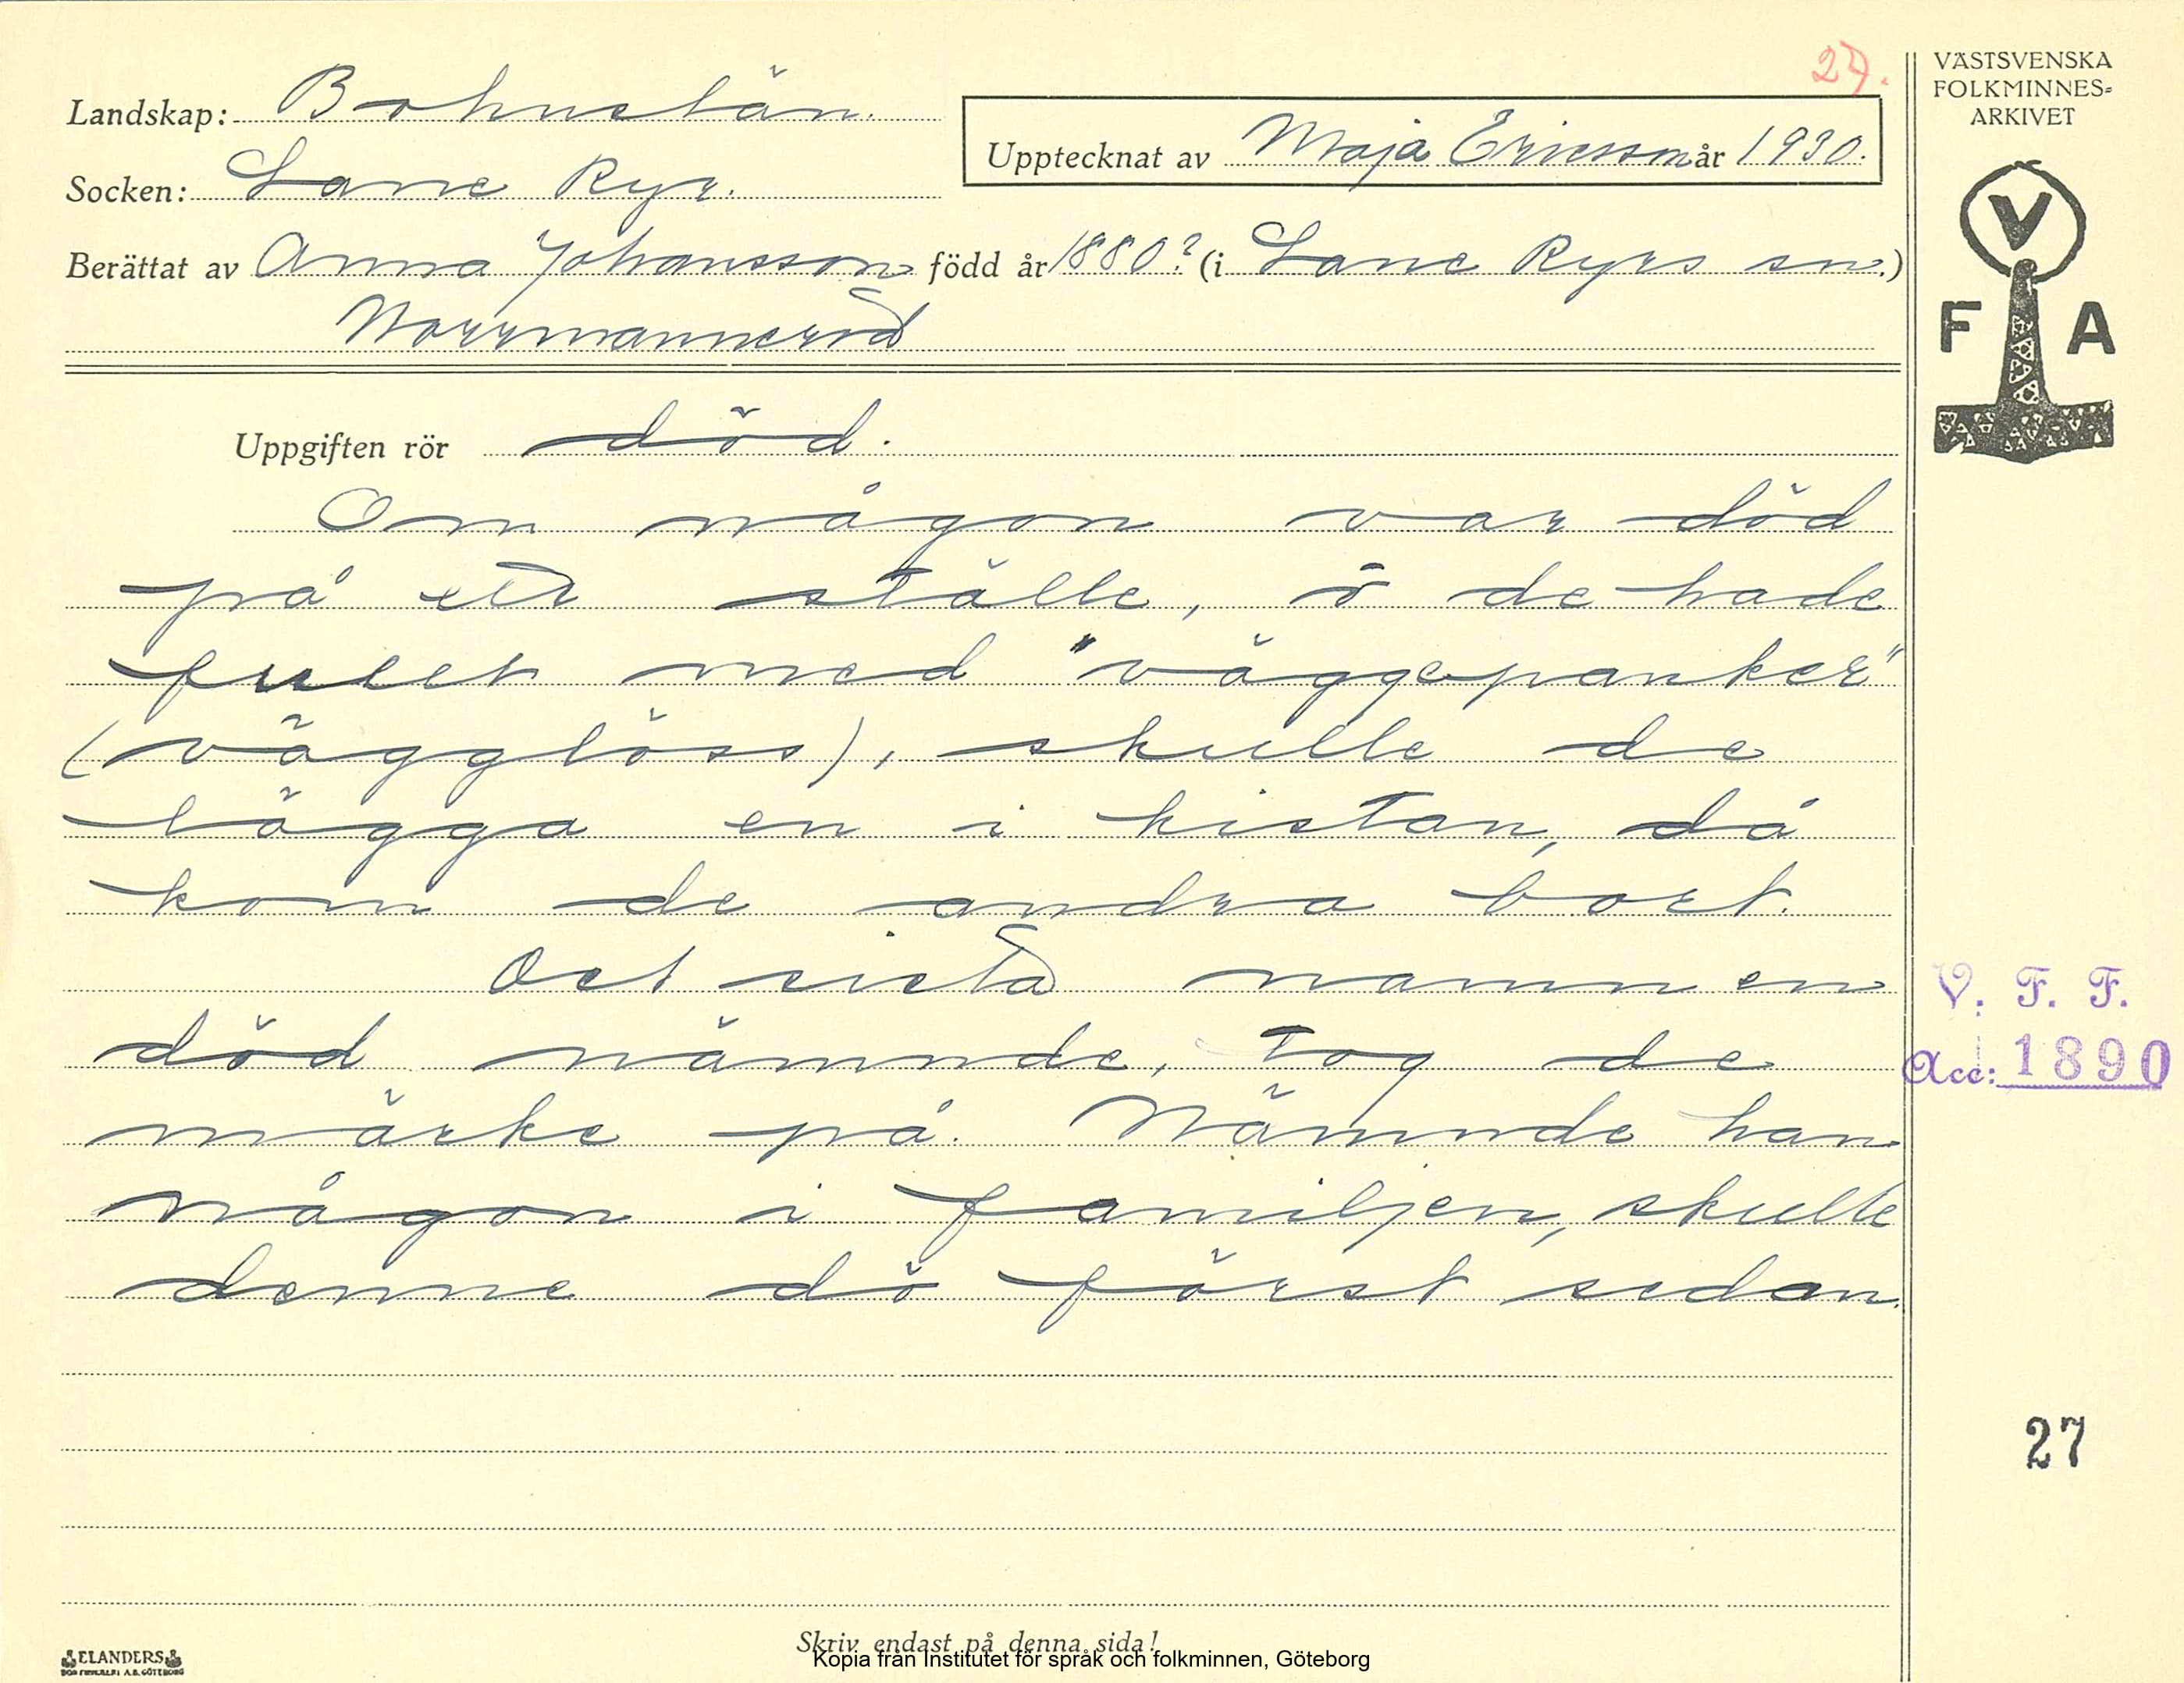 27.
VÄSTSVENSKA
FOLKMINNES-
ARKIVET
Landskap: Bohuslän.
Upptecknat av Maja Ericsson år 1930.
Socken: Lane Ryr.
Berättat av Anna Johansson född år 1880? (i Lane Ryrs sn.)
Norrmannerød
V
F A
Uppgiften rör död.
Om någon var död
på ett ställe, ö de hade
fullt med "väggepanker"
(vägglöss), skulle de
lägga en i kistan, då
kom de andra bort.
Det sista namn en
död nämnde, tog de
märke på. Nämnde han
någon i familjen, skulle
denne dö först sedan.
V. F. F.
Acc: 1890
27
Skriv endast på denna sida!
Kopia från Institutet för språk och folkminnen, Göteborg
ELANDERS